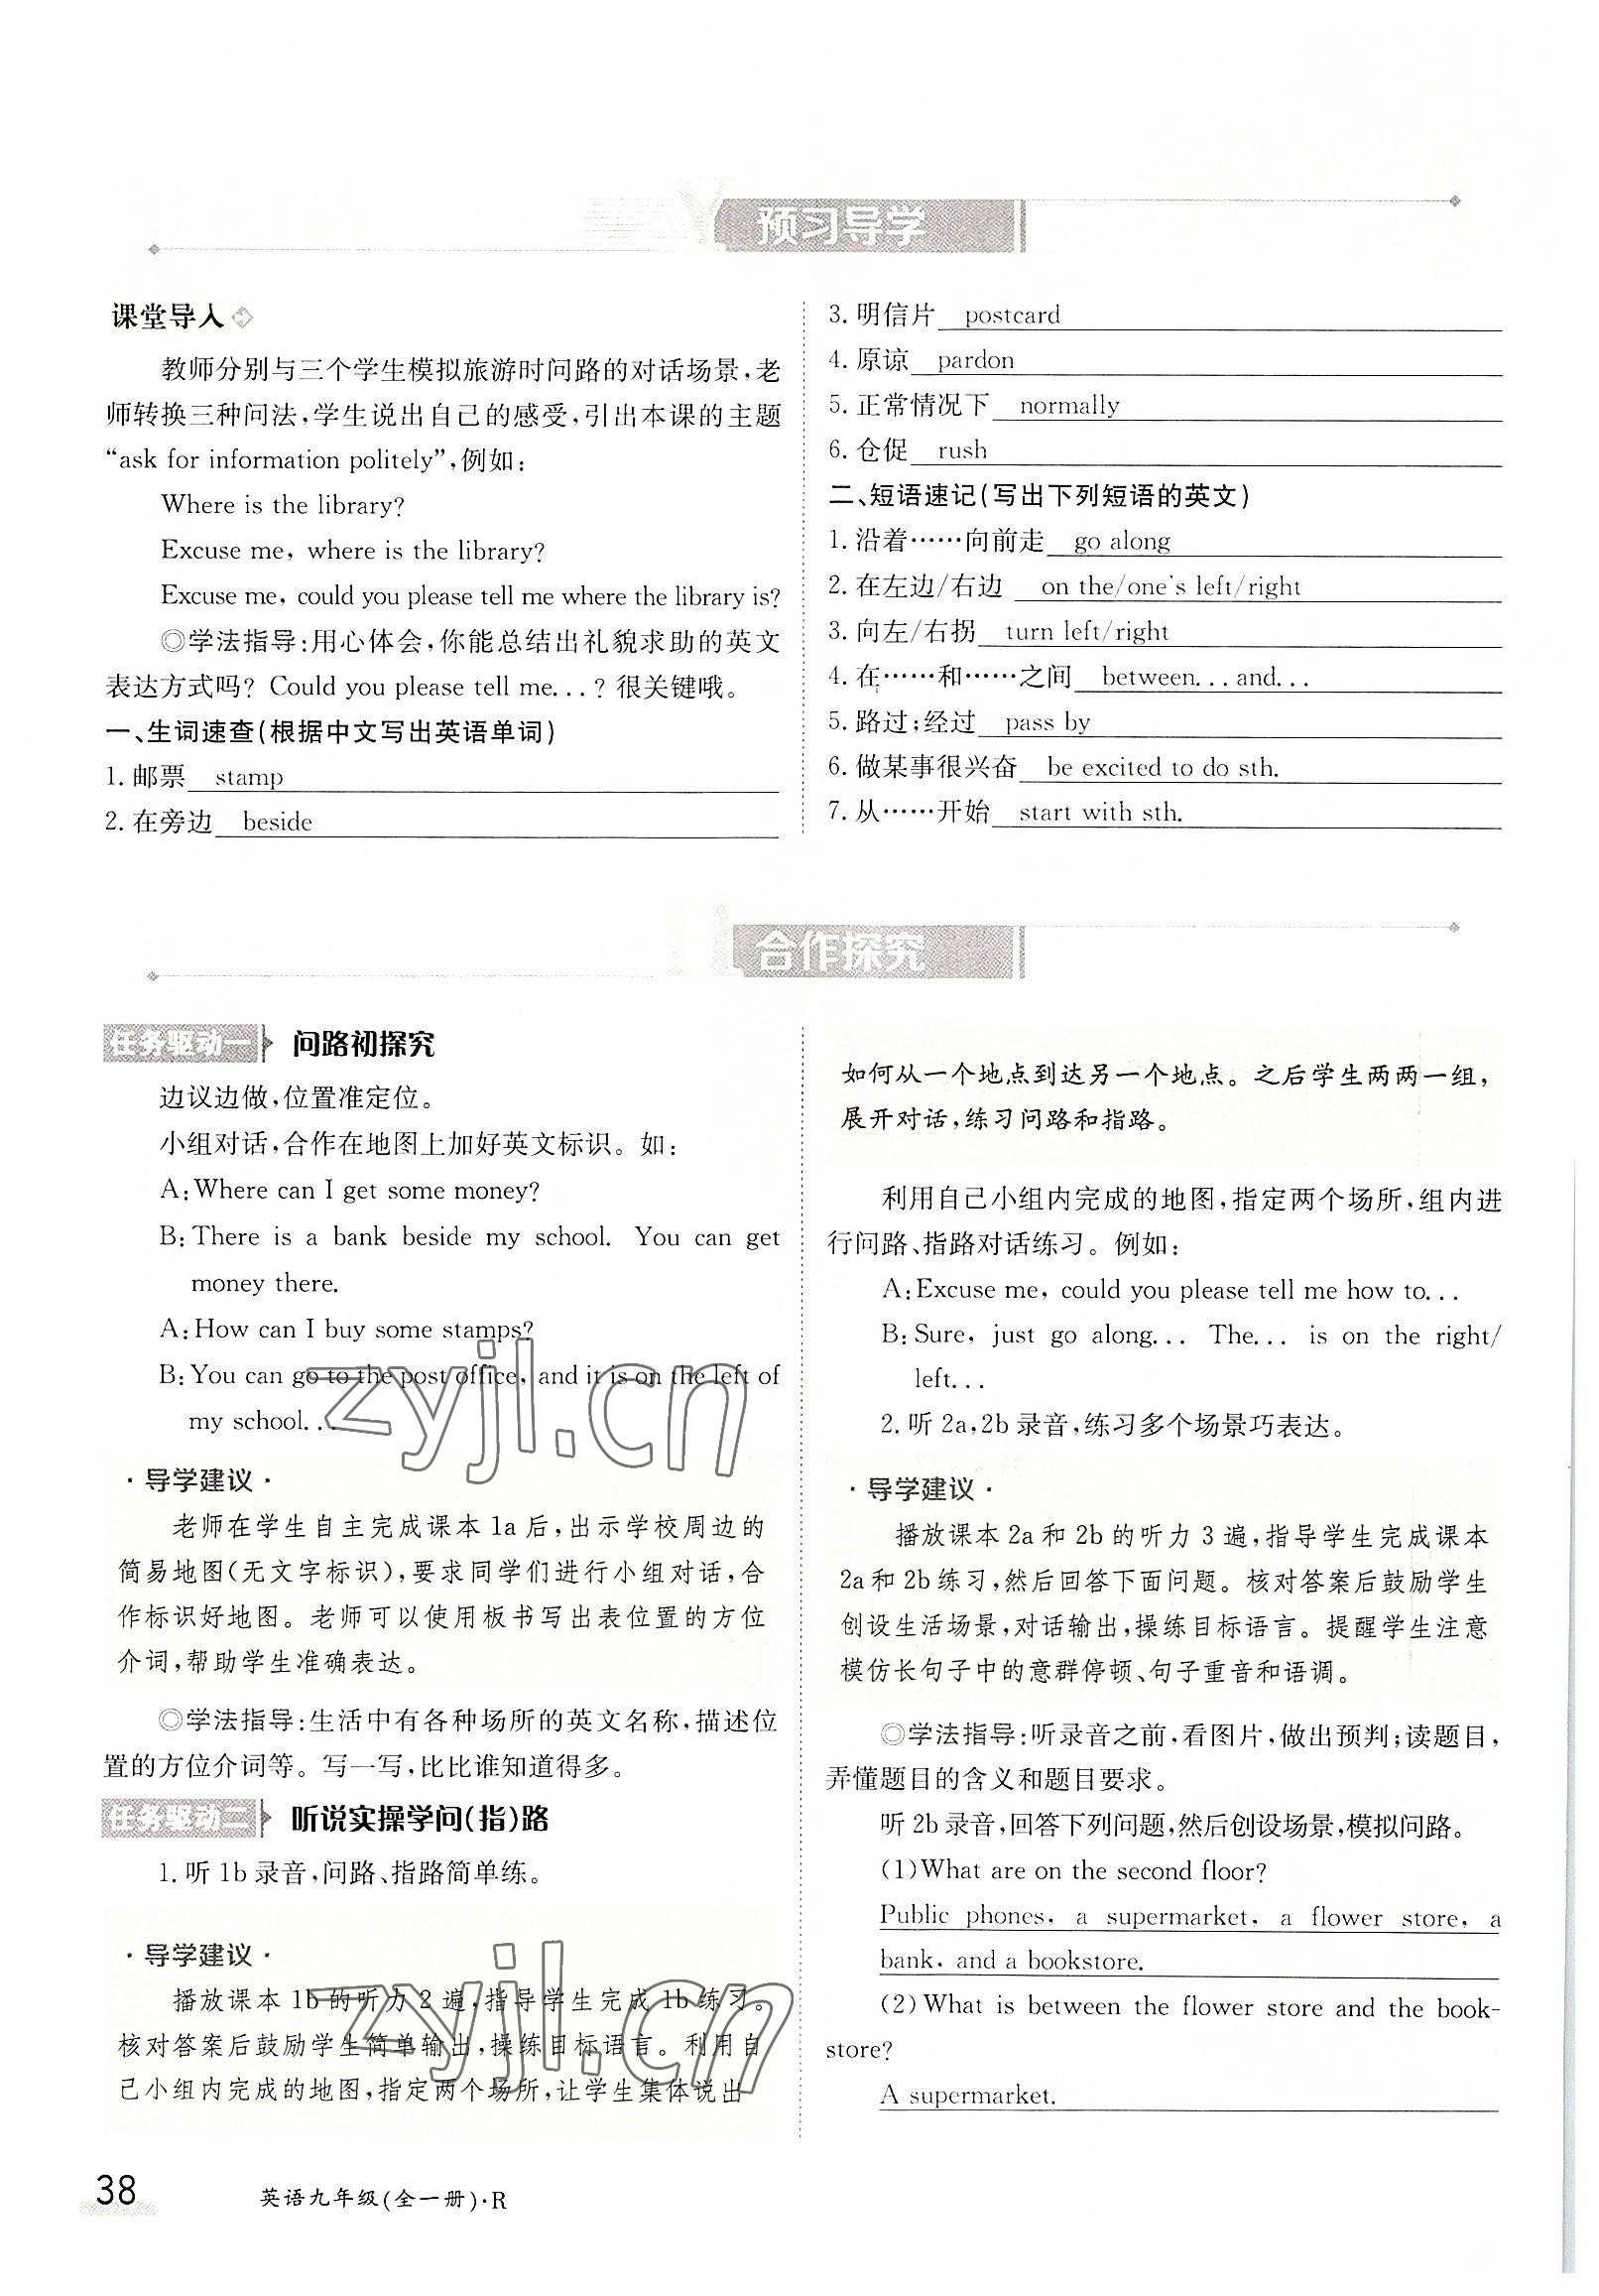 预习导学
课堂导入
教师分别与三个学生模拟旅游时问路的对话场景,老
师转换三种问法,学生说出自己的感受,引出本课的主题
“ask for information politely”,例如:
Where is the library?
Excuse me, where is the library?
Excuse me, could you please tell me where the library is?
◎学法指导:用心体会,你能总结出礼貌求助的英文
表达方式吗? Could you please tell me...? 很关键哦。
一、生词速查(根据中文写出英语单词)
1. 邮票 stamp
2. 在旁边 beside
3. 明信片 postcard
4. 原谅 pardon
5. 正常情况下 normally
6. 仓促 rush
二、短语速记(写出下列短语的英文)
1. 沿着……向前走 go along
2. 在左边/右边 on the/one's left/right
3. 向左/右拐 turn left/right
4. 在……和……之间 between...and...
5. 路过;经过 pass by
6. 做某事很兴奋 be excited to do sth.
7. 从……开始 start with sth.
合作探究
任务驱动一 问路初探究
边议边做,位置准定位。
小组对话,合作在地图上加好英文标识。如:
A: Where can I get some money?
B: There is a bank beside my school. You can get
money there.
A: How can I buy some stamps?
B: You can go to the post office, and it is on the left of
my school...
·导学建议·
老师在学生自主完成课本 1a 后,出示学校周边的
简易地图(无文字标识),要求同学们进行小组对话,合
作标识好地图。老师可以使用板书写出表位置的方位
介词,帮助学生准确表达。
◎学法指导:生活中有各种场所的英文名称,描述位
置的方位介词等。写一写,比比谁知道得多。
任务驱动二 听说实操学问(指)路
1. 听 1b 录音,问路、指路简单练。
·导学建议·
播放课本 1b 的听力 2 遍,指导学生完成 1b 练习。
核对答案后鼓励学生简单输出,操练目标语言。利用自
己小组内完成的地图,指定两个场所,让学生集体说出
如何从一个地点到达另一个地点。之后学生两两一组,
展开对话,练习问路和指路。
利用自己小组内完成的地图,指定两个场所,组内进
行问路、指路对话练习。例如:
A: Excuse me, could you please tell me how to...
B: Sure, just go along... The... is on the right/
left...
2. 听 2a,2b 录音,练习多个场景巧表达。
·导学建议·
播放课本 2a 和 2b 的听力 3 遍,指导学生完成课本
2a 和 2b 练习,然后回答下面问题。核对答案后鼓励学生
创设生活场景,对话输出,操练目标语言。提醒学生注意
模仿长句子中的意群停顿、句子重音和语调。
◎学法指导:听录音之前,看图片,做出预判;读题目,
弄懂题目的含义和题目要求。
听 2b 录音,回答下列问题,然后创设场景,模拟问路。
(1)What are on the second floor?
Public phones, a supermarket, a flower store, a
bank, and a bookstore.
(2)What is between the flower store and the book-
store?
A supermarket.
zyjl.cn
zyjl.cn
38 英语九年级(全一册)·R